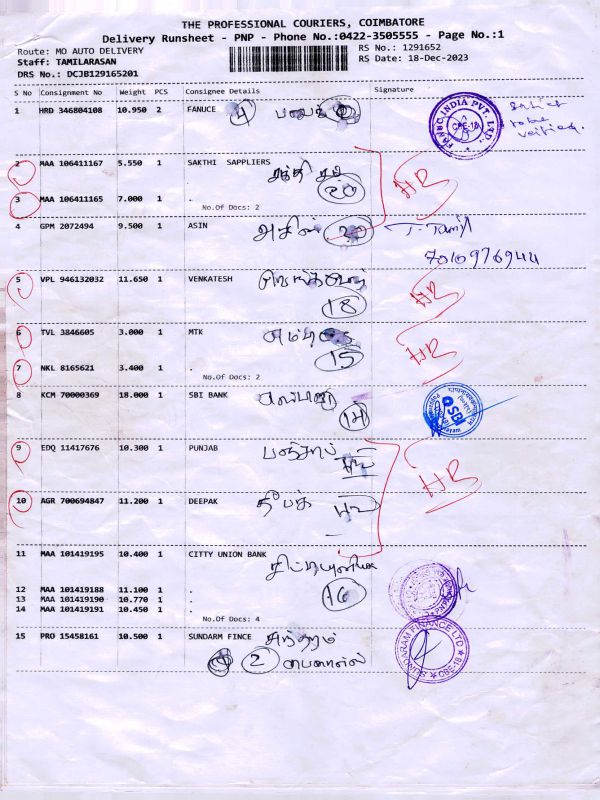 THE PROFESSIONAL COURIERS, COIMBATORE
Delivery Runsheet - PNP - Phone No.:0422-3505555 - Page No.:1
Route: MO AUTO DELIVERY RS No.: 1291652
Staff: TAMILARASAN RS Date: 18-Dec-2023
DRS No.: DCJB129165201
S No Consignment No Weight PCS Consignee Details Signature
1 HRD 346804108 10.950 2 FANUCE 4
2 MAA 106411167 5.550 1 SAKTHI SAPPLIERS
சக்தி சப்
20 HB
3 MAA 106411165 7.000 1 .
No.Of Docs: 2
4 GPM 2072494 9.500 1 ASIN அசின் J. Tamil
7010976944
5 VPL 946132032 11.650 1 VENKATESH HB
18
6 TVL 3846605 3.000 1 MTK
15 HB
7 NKL 8165621 3.400 1 .
No.Of Docs: 2
8 KCM 70000369 18.000 1 SBI BANK SBI
14
9 EDQ 11417676 10.300 1 PUNJAB பஞ்சாப்
HB
10 AGR 700694847 11.200 1 DEEPAK தீபக்
11 MAA 101419195 10.400 1 CITTY UNION BANK
16
12 MAA 101419188 11.100 1 .
13 MAA 101419190 10.770 1 .
14 MAA 101419191 10.450 1 .
No.Of Docs: 4
15 PRO 15458161 10.500 1 SUNDARM FINCE சுந்தரம்
2 பைனான்ஸ் SUNDARAM FINANCE LTD CBE-18